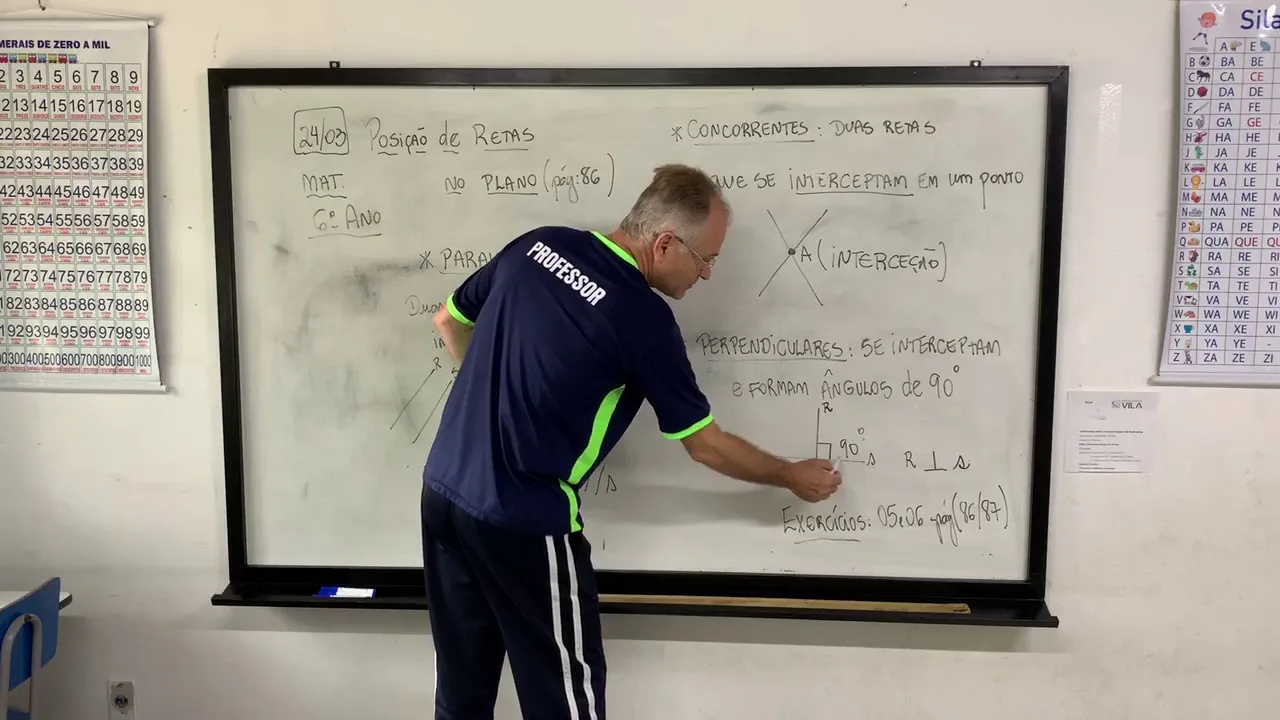 MERAIS DE ZERO A MIL
2 3 4 5 6 7 8 9
12 13 14 15 16 17 18 19
22 23 24 25 26 27 28 29
32 33 34 35 36 37 38 39
42 43 44 45 46 47 48 49
52 53 54 55 56 57 58 59
62 63 64 65 66 67 68 69
71 72 73 74 75 76 77 78 79
81 82 83 84 85 86 87 88 89
91 92 93 94 95 96 97 98 99
300 400 500 600 700 800 900 1000
24/03 Posição de Retas
MAT. no PLANO (pág:86)
6º Ano
* PARA
Duas
R
* CONCORRENTES: DUAS RETAS
QUE SE INTERCEPTAM EM um ponto
A (INTERCEÇÃO)
PERPENDICULARES: SE INTERCEPTAM
e FORMAM ÂNGULOS de 90°
R
90°
s R ⊥ s
Exercícios: 05 e 06 pág (86/87)
PROFESSOR
Sila
A E
B BA BE
C CA CE
D DA DE
F FA FE
G GA GE
H HA HE
J JA JE
K KA KE
L LA LE
M MA ME
N NA NE
P PA PE
Q QUA QUE
R RA RE
S SA SE
T TA TE
V VA VE
W WA WE
X XA XE
Y YA YE -
Z ZA ZE ZI
VILA